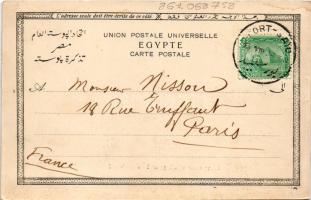 L'adresse seule doit être écrite de ce côté.
اتحاد بوستة العام
UNION POSTALE UNIVERSELLE
مصر
EGYPTE
تذكرة بوستة
CARTE POSTALE
PORT-SAID
A. Monsieur Nisson
18 Rue Truffaut
Paris
France